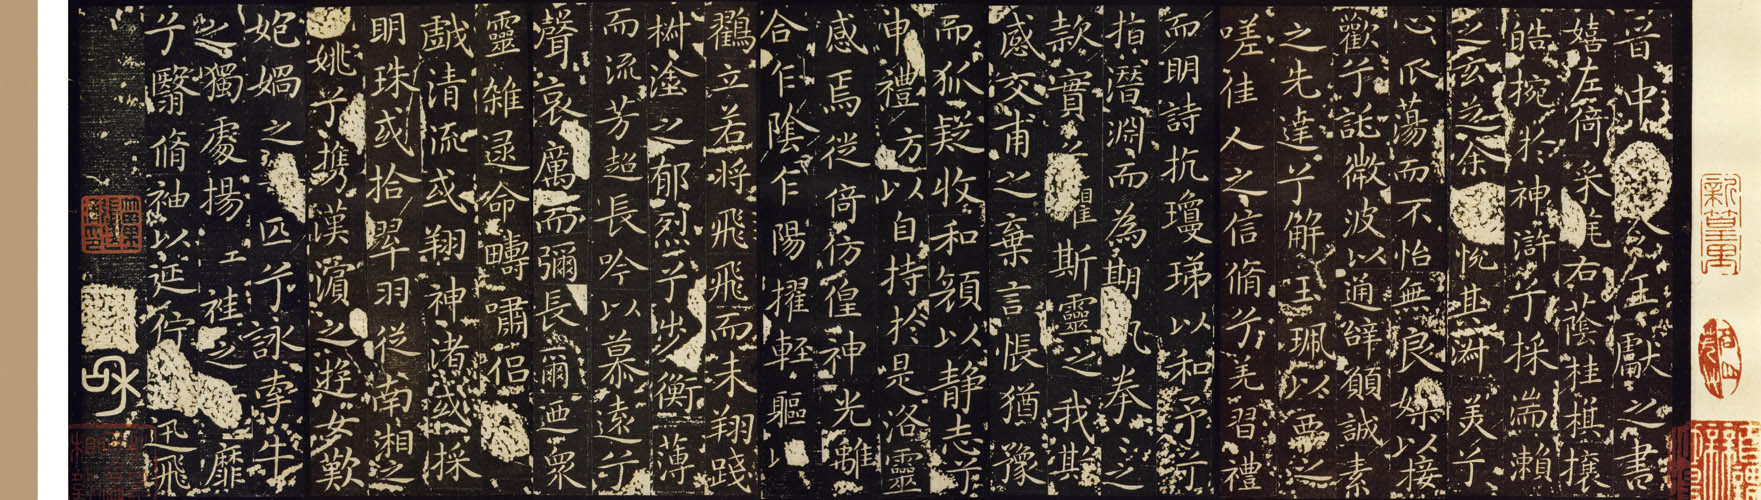 晉中令王獻之書
嬉左倚采旄右蔭桂棋攘
皓捥於神滸兮採湍瀨
之玄芝余悅其淑美兮
心蕩而不怡無良媒以接
歡兮託微波以通辭願誠素
之先達兮解玉珮以要之
嗟佳人之信脩兮羌習禮
而明詩抗瓊珶以和予兮
指潛淵而為期執拳之
款實兮懼斯靈之我欺
感交甫之棄言悵猶豫
而狐疑收和顏以靜志兮
申禮方以自持於是洛靈
感焉徙倚彷徨神光離
合乍陰乍陽擢輕軀以
鸛立若將飛飛而未翔踐
椒塗之郁烈兮步衡薄
而流芳超長吟以慕遠兮
聲哀厲而彌長爾迺眾
靈雜遝命疇嘯侶
戲清流或翔神渚或採
明珠或拾翠羽從南湘之
姚兮攜漢濱之遊女歎
匏媧之無匹兮詠牽牛
之獨處揚袿之靡
兮翳脩袖以延佇迅飛